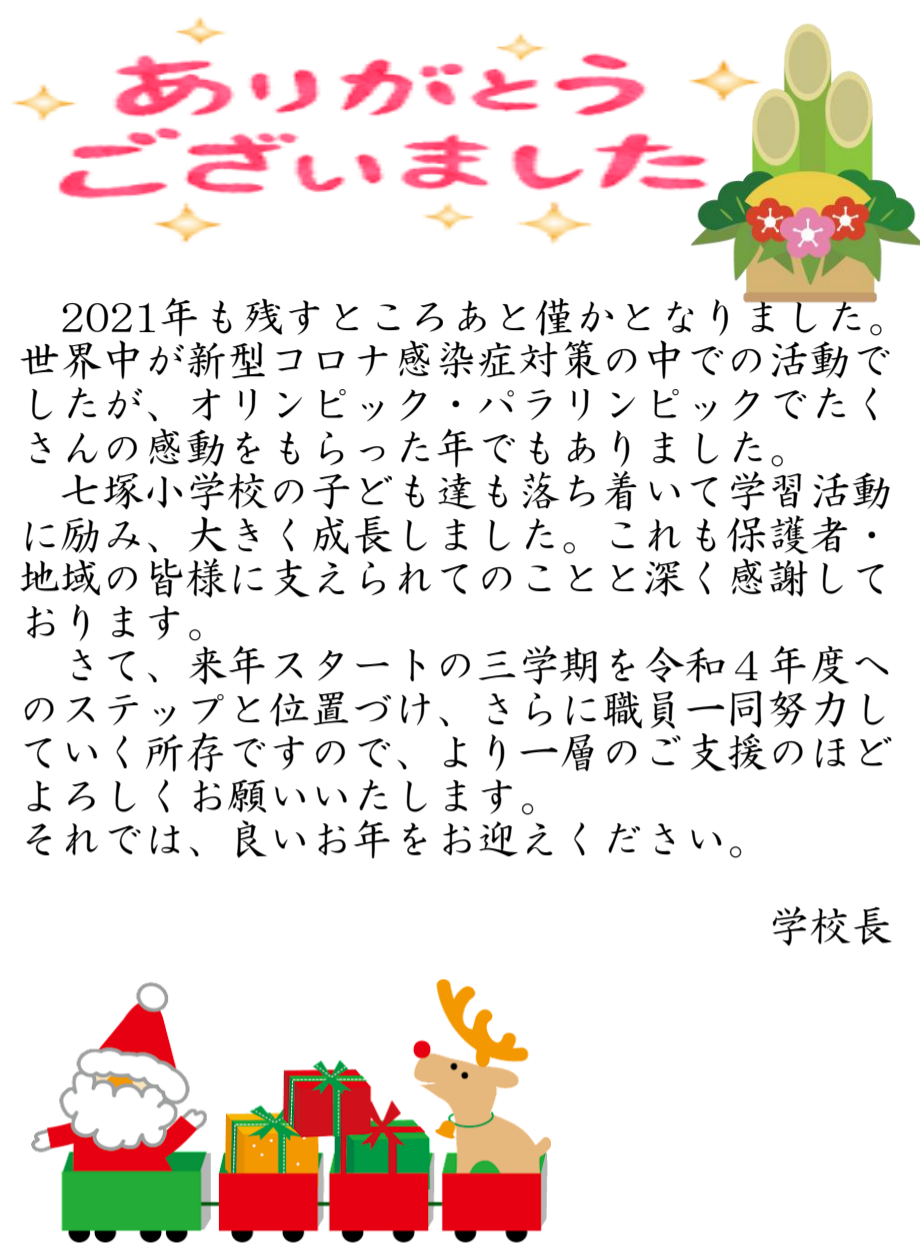 ありがとう
ございました
　2021年も残すところあと僅かとなりました。
世界中が新型コロナ感染症対策の中での活動で
したが、オリンピック・パラリンピックでたく
さんの感動をもらった年でもありました。
　七塚小学校の子ども達も落ち着いて学習活動
に励み、大きく成長しました。これも保護者・
地域の皆様に支えられてのことと深く感謝して
おります。
　さて、来年スタートの三学期を令和４年度へ
のステップと位置づけ、さらに職員一同努力し
ていく所存ですので、より一層のご支援のほど
よろしくお願いいたします。
それでは、良いお年をお迎えください。
学校長